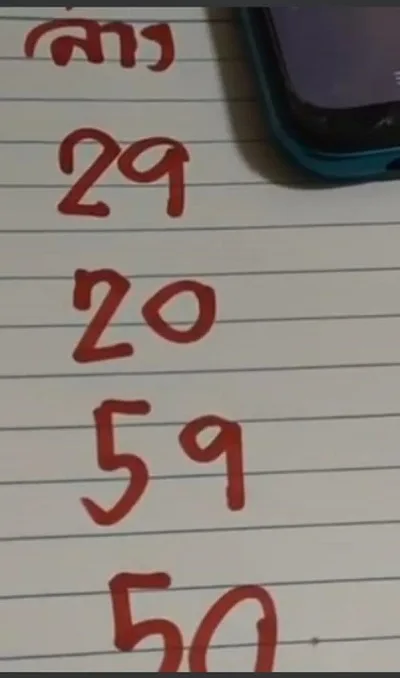 ล่าง
29
20
59
50